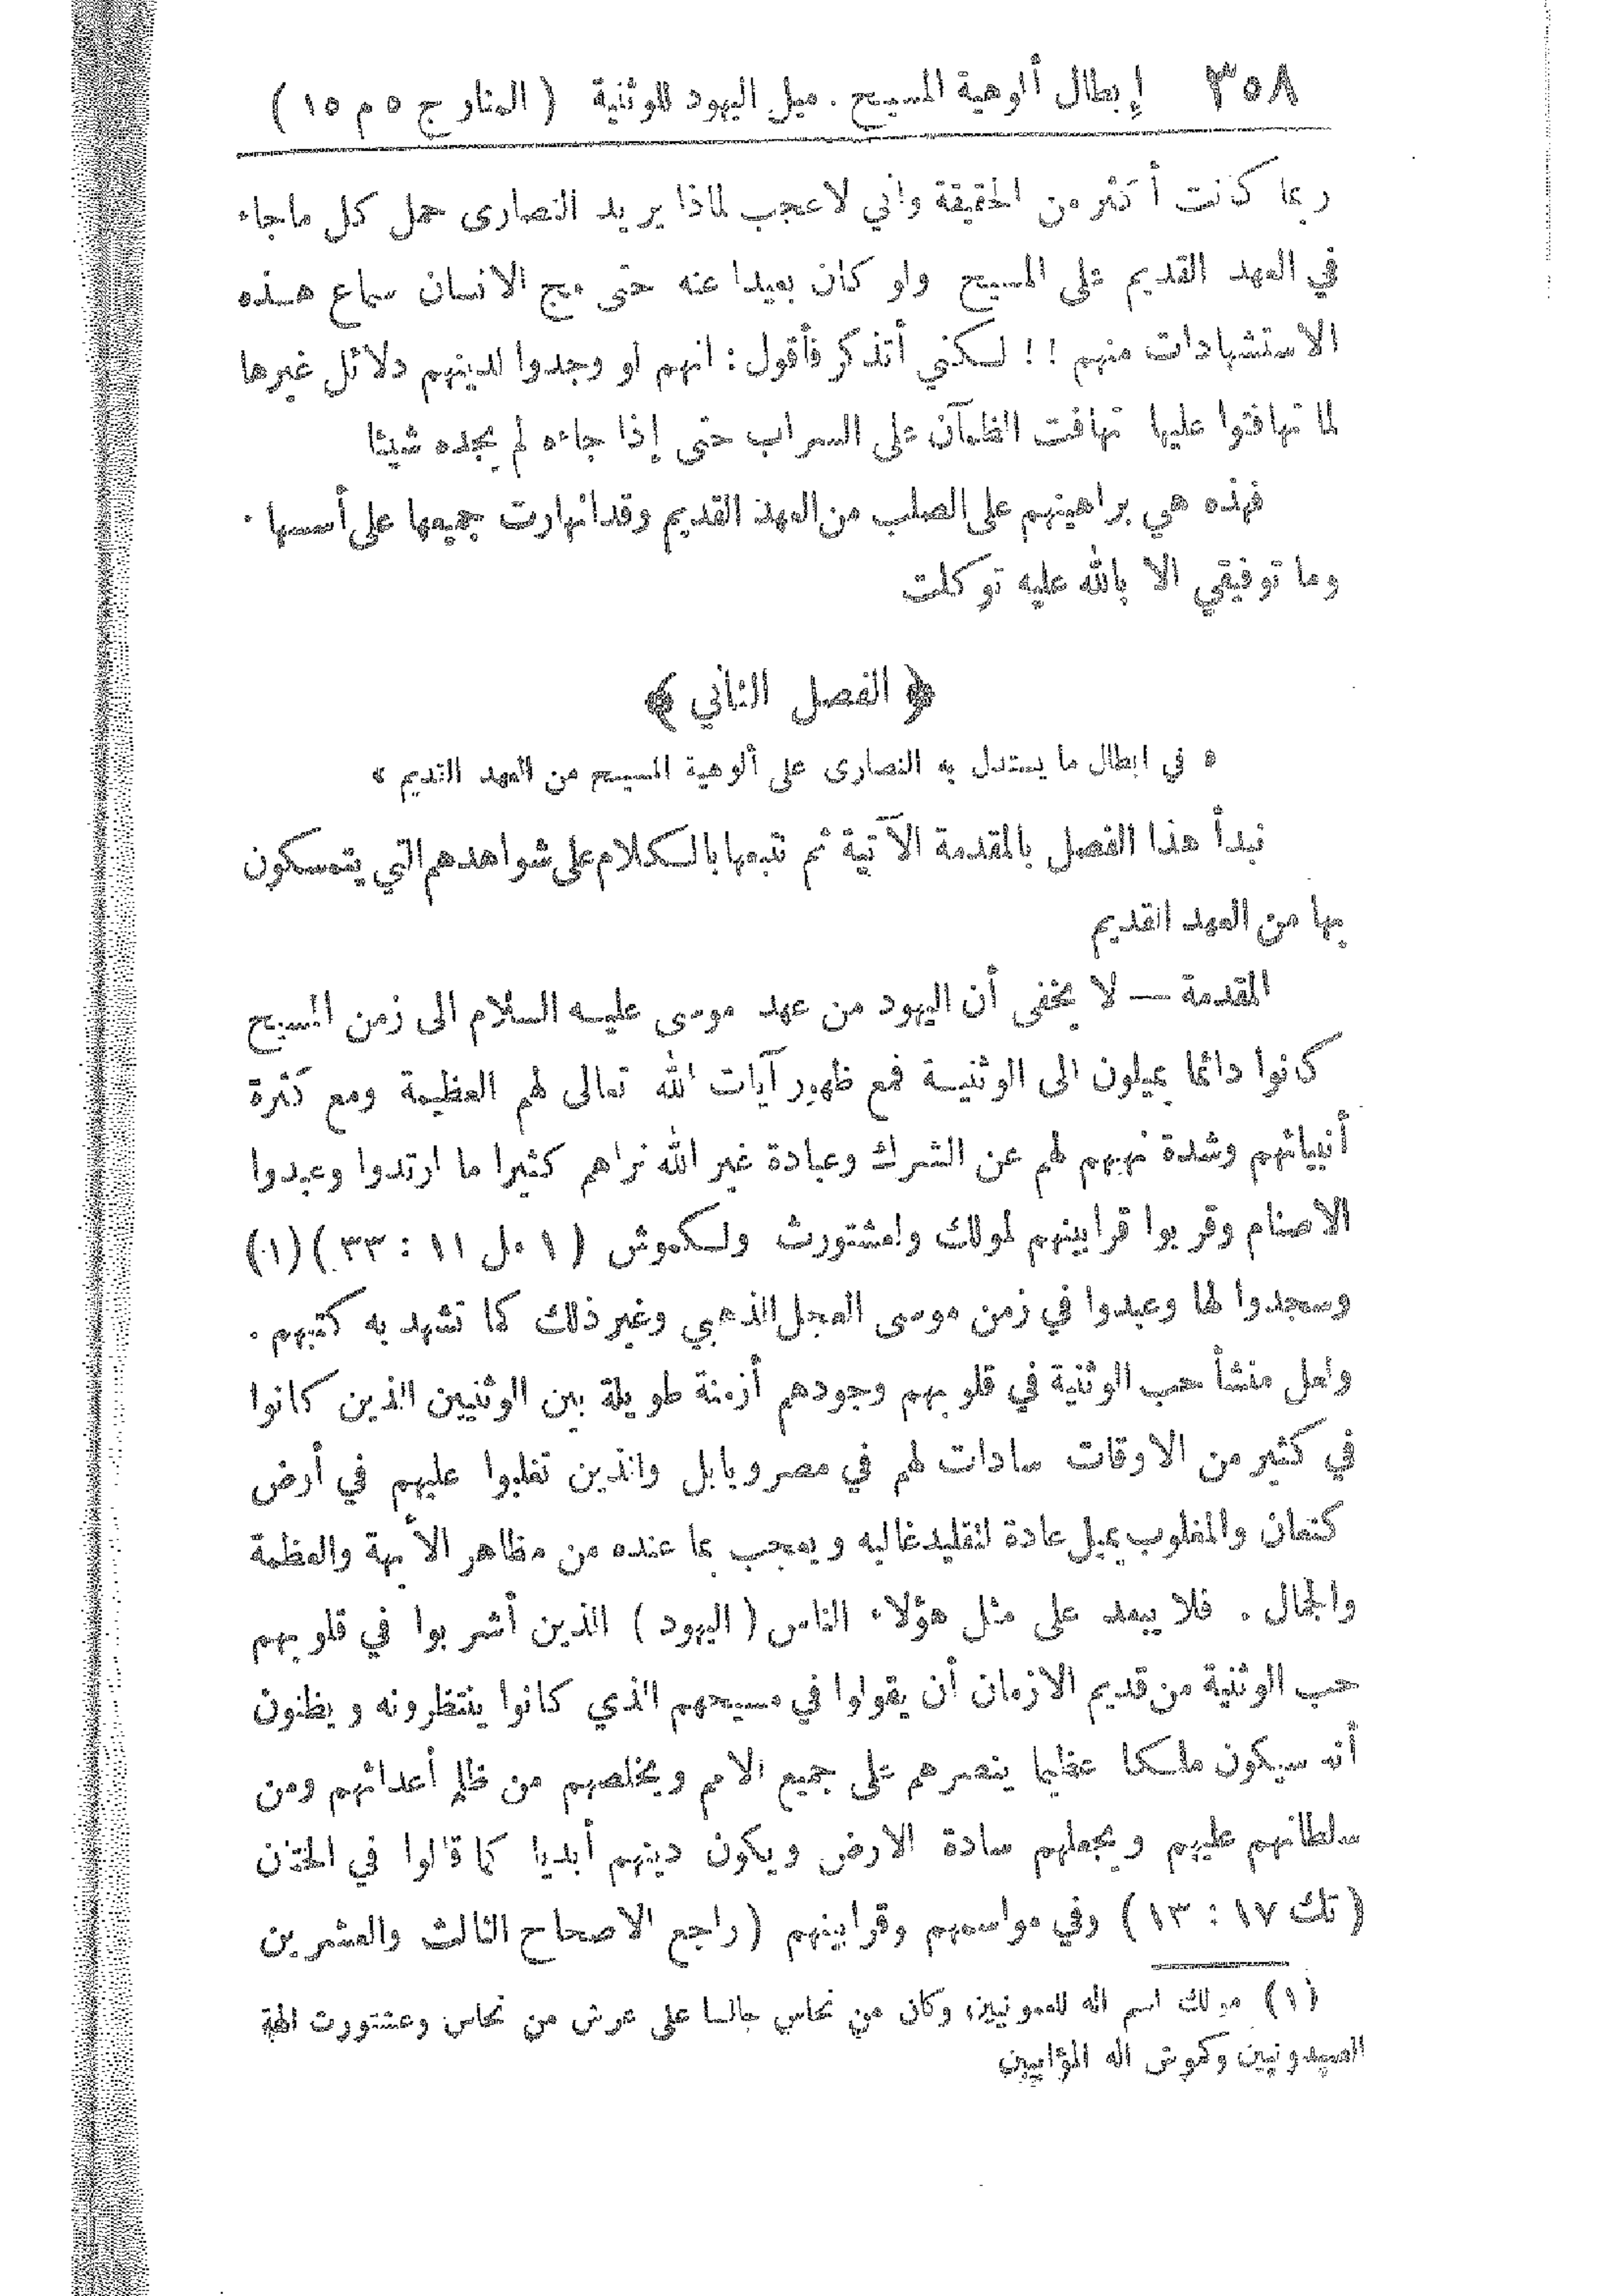 ٣٥٨ إبطال ألوهية المسيح . ميل اليهود للوثنية ( المنار ج ٥ م ١٥ )
ربما كانت أكثر من الحقيقة واني لاعجب لماذا يريد النصارى حمل كل ماجاء
في العهد القديم على المسيح ولو كان بعيدا عنه حتى مج الانسان سماع هذه
الاستشهادات منهم !! لكني أتذكر فأقول : انهم لو وجدوا لدينهم دلائل غيرها
لما تهافتوا عليها تهافت الظمآن على السراب حتى إذا جاءه لم يجده شيئا
فهذه هي براهينهم على الصلب من العهد القديم وقد انهارت جميعها على أسسها .
وما توفيقي الا بالله عليه توكلت
﴿ الفصل الثاني ﴾
« في ابطال ما يستدل به النصارى على ألوهية المسيح من العهد القديم »
نبدأ هذا الفصل بالمقدمة الآتية ثم نتبعها بالكلام على شواهدهم التي يتمسكون
بها من العهد القديم
المقدمة — لا يخفى أن اليهود من عهد موسى عليه السلام الى زمن المسيح
كانوا دائما يميلون الى الوثنية فمع ظهور آيات الله تعالى لهم العظيمة ومع كثرة
أنبيائهم وشدة نهيهم لهم عن الشرك وعبادة غير الله نراهم كثيرا ما ارتدوا وعبدوا
الاصنام وقربوا قرابينهم لمولك ولعشتورث ولكموش ( ١ مل ١١ : ٣٣ ) (١)
وسجدوا لها وعبدوا في زمن موسى العجل الذهبي وغير ذلك كما تشهد به كتبهم .
ولعل منشأ حب الوثنية في قلوبهم وجودهم أزمنة طويلة بين الوثنيين الذين كانوا
في كثير من الاوقات سادات لهم في مصر وبابل والذين تغلبوا عليهم في أرض
كنعان والمغلوب يميل عادة لتقليد غالبه ويعجب بما عنده من مظاهر الأبهة والعظمة
والجمال . فلا يبعد على مثل هؤلاء الناس ( اليهود ) الذين أشربوا في قلوبهم
حب الوثنية من قديم الازمان أن يقولوا في مسيحهم الذي كانوا ينتظرونه ويظنون
أنه سيكون ملكا عظيما ينصرهم على جميع الامم ويخلصهم من ظلم أعدائهم ومن
سلطانهم عليهم ويجعلهم سادة الارض ويكون دينهم أبديا كما قالوا في الختن
( تك ١٧ : ١٣ ) وفي مواسمهم وقرابينهم ( راجع الاصحاح الثالث والعشرين
(١) مولك اسم اله للعمونيين وكان من نحاس جالسا على عرش من نحاس وعشتورث الهة
الصيدونيين وكموش اله المؤابيين